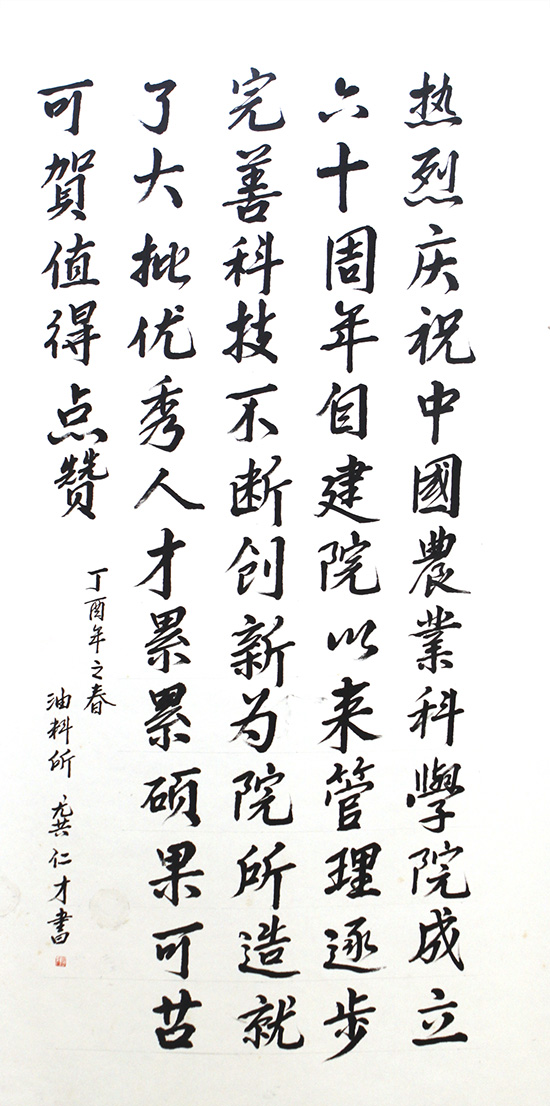 热烈庆祝中國農業科學院成立
六十周年自建院以来管理逐步
完善科技不断创新为院所造就
了大批优秀人才累累硕果可苦
可賀值得点贊
丁酉年之春
油料所 龚仁才書